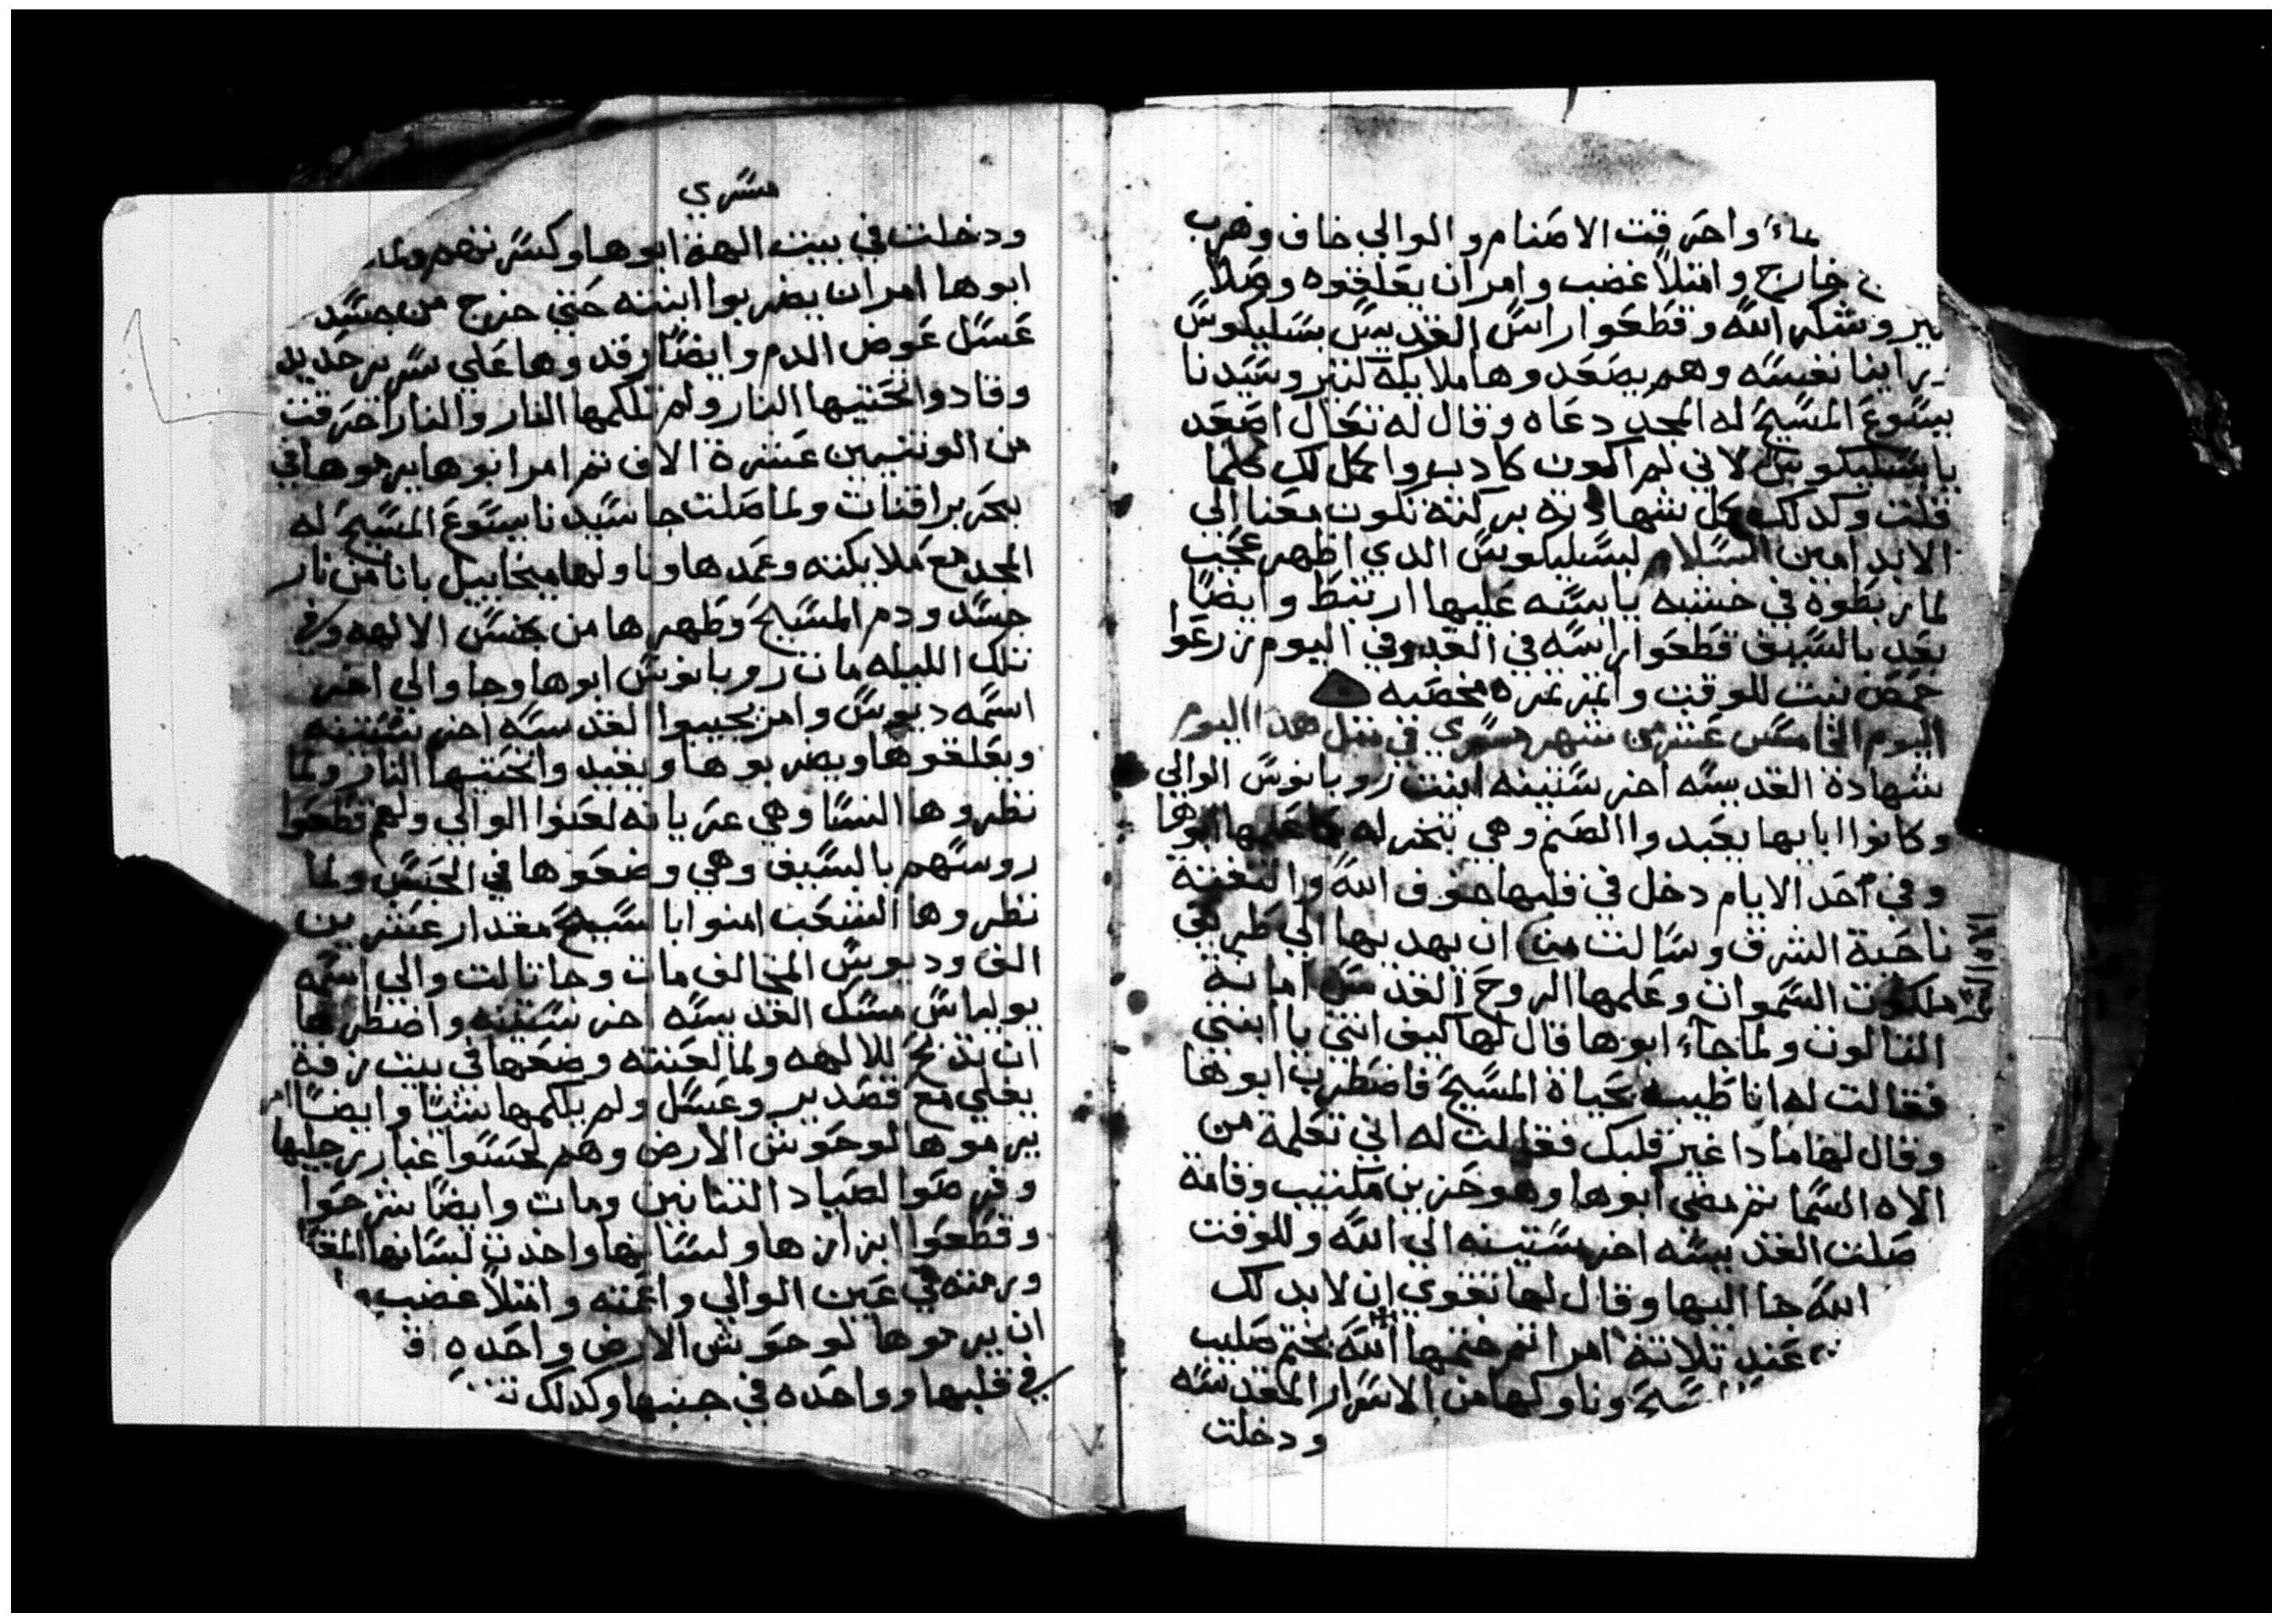 ماء واحرقت الاصنام والوالي خاف وهرب
خارج وامتلا غضب وامر ان يعلقوه وصلا
وشكر الله وقطعوا راس القديس بسليكوس
راينا نفسه وهم يصعدوها ملايكة لنير وسيدنا
يسوع المسيح له المجد دعاه وقال له تعال اصعد
يا بسليكوس لاني لم اكون كادب واكمل لك كلما
قلت وكدلك كمل شهادته بركته تكون معنا الي
الابد امين السلام لبسليكوس الدي اظهر عجب
لما ربطوه في خشبه يابسه عليها ارتبط وايضا
بعد بالسيف قطعوا راسه في الغد وفي اليوم زرعوا
حمص نبت للوقت واتمر تمره مخصبه
اليوم الخامس عشر من شهر مسري في متل هدا اليوم
شهادة القديسه اخرستينه ابنت روبانوس الوالي
وكانوا ابايها يعبدوا الصنم وهي تبخر له كما علمها ابوها
وفي احد الايام دخل في قلبها خوف الله والتفتة
ناحية الشرق وسالت من ان يهديها الي طريق
ملكوت السموات وعلمها الروح القدس امانة
التالوت ولما جاء ابوها قال لها كيف انتي يا ابنتي
فقالت له انا طيبه بحياة المسيح فاضطرب ابوها
وقال لها مادا غير قلبك فقالت له اني تعلمة من
الاه السما تم مضي ابوها وهو حزين مكتيب وقامة
صلت القديسه اخرستينه الي الله وللوقت
الله جا اليها وقال لها تقوي ان لابد لك
عند تلاتة امرا تم ختمها الله بختم صليب
المسيح وناولها من الاسرار المقدسه
ودخلت
مسري
ودخلت في بيت الهة ابوها وكسرتهم ولما
ابوها امر ان يضربوا ابنته حتي خرج من جسد
عسل عوض الدم وايضا رقدوها علي سرير حديد
وقادوا تحتيها النار ولم تلكمها النار والنار احرقت
من الوتنيين عشرة الاف تم امر ابوها يرموها في
بحر براقنات ولما صلت جا سيدنا يسوع المسيح له
المجد مع ملايكته وعمدها وناولها ميخاييل باناء من نار
جسد ودم المسيح وطهرها من نجس الالهه وفي
تلك الليله مات روبانوس ابوها وجا والي اخر
اسمه ديوس وامر يجيبوا القديسه اخرستينه
ويعلقوها ويضربوها ويقيدوا تحتيها النار ولما
نظروها النسا وهي عريانه لعنوا الوالي ولهم قطعوا
روسهم بالسيف وهي وضعوها في الحبس ولما
نظروها الشعب امنوا بالمسيح مقدار عشرين
الف وديوس المخالف مات وجا تالت والي اسمه
يولياس مسك القديسه اخرستينه واضطرها
ان تدبح للالهه ولما لعنته وضعها في بيت زفة
يغلي مع قصدير وعسل ولم يلكمها شيا وايضا امر
يرموها لوحوش الارض وهم لحسوا غبار رجليها
وقرضوا لصياد التنانين ومات وايضا شرحوا
وقطعوا ابزازها ولسانها واخدت لسانها المقطوع
ورمته في عين الوالي واعمته وامتلا غضب
ان يرموها لوحوش الارض واحده
في قلبها وواحده في جنبها وكدلك